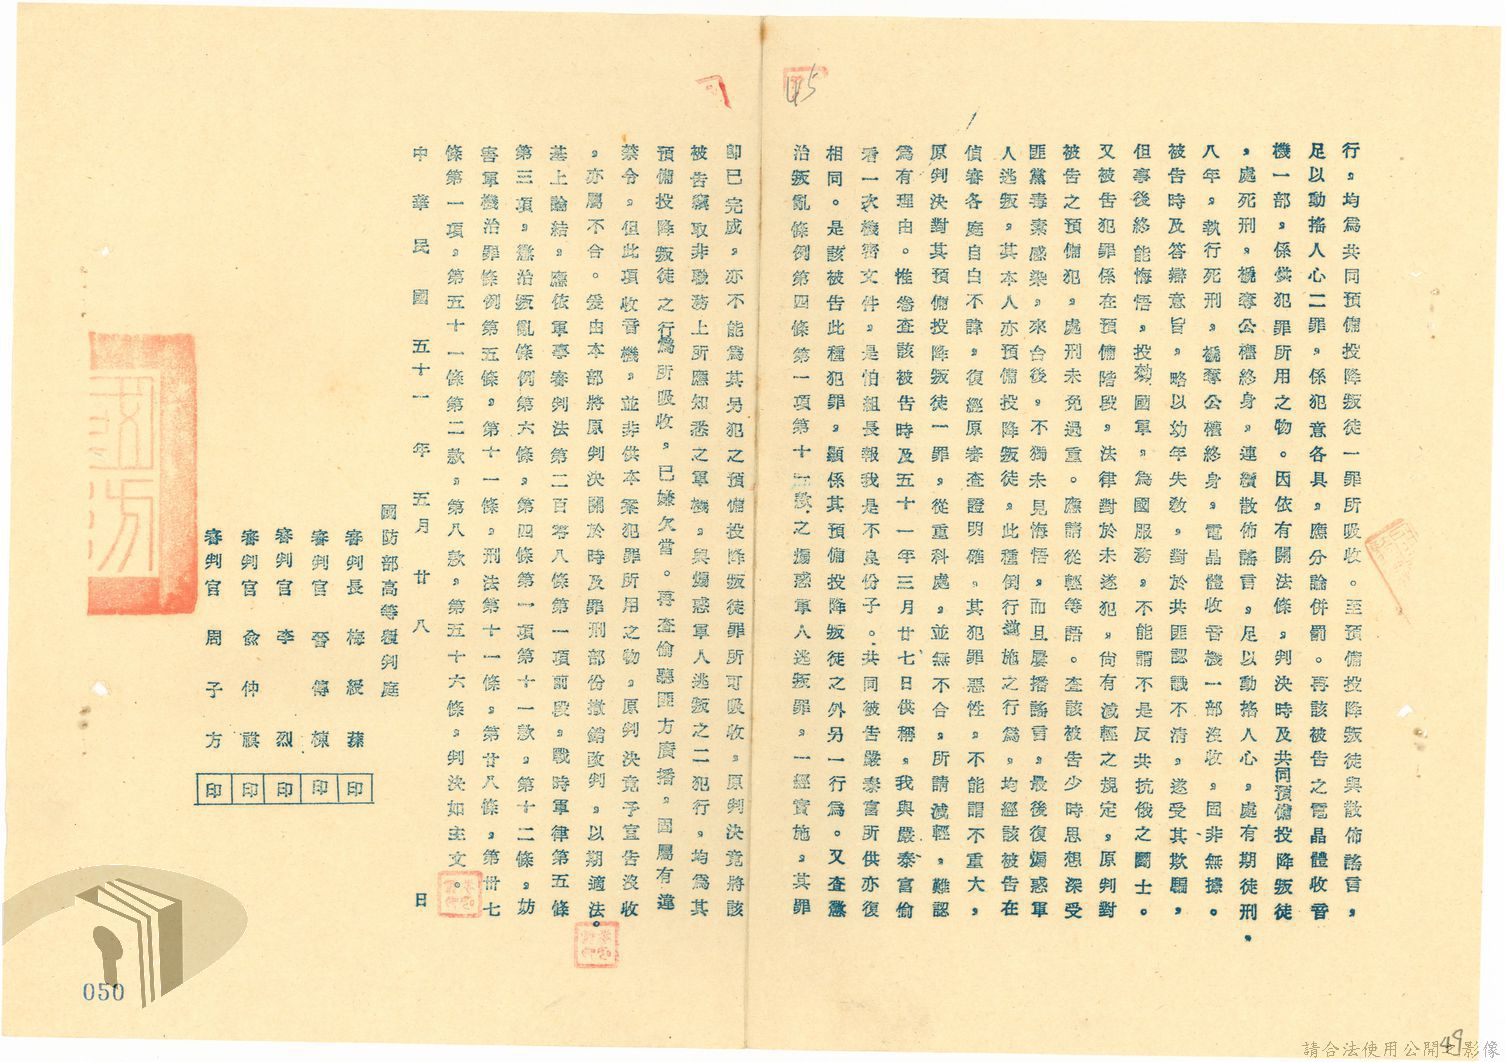 45
行，均為共同預備投降叛徒一罪所吸收。至預備投降叛徒與散佈謠言，
足以動搖人心二罪，係犯意各具，應分論併罰。再該被告之電晶體收音
機一部，係供犯罪所用之物。因依有關法條，判決時及共同預備投降叛徒
，處死刑，褫奪公權終身，連續散佈謠言，足以動搖人心，處有期徒刑，
八年，執行死刑，褫奪公權終身，電晶體收音機一部沒收，固非無據。
被告時及答辯意旨，略以幼年失教，對於共匪認識不清，遂受其欺騙，
但事後終能悔悟，投効國軍，為國服務，不能謂不是反共抗俄之鬪士。
又被告犯罪係在預備階段，法律對於未遂犯，尚有減輕之規定，原判對
被告之預備犯，處刑未免過重。應請從輕等語。查該被告少時思想深受
匪黨毒素感染，來台後，不獨未見悔悟，而且屢播謠言，最後復煽惑軍
人逃叛，其本人亦預備投降叛徒，此種倒行逆施之行為，均經該被告在
偵審各庭自白不諱，復經原審查證明確，其犯罪惡性，不能謂不重大，
原判決對其預備投降叛徒一罪，從重科處，並無不合，所請減輕，難認
為有理由。惟卷查該被告時及五十一年三月廿七日供稱，我與嚴泰富偷
看一次機密文件，是怕組長報我是不良份子。共同被告嚴泰富所供亦復
相同。是該被告此種犯罪，顯係其預備投降叛徒之外另一行為。又查懲
治叛亂條例第四條第一項第十一款之煽惑軍人逃叛罪，一經實施，其罪
即已完成，亦不能為其另犯之預備投降叛徒罪所可吸收，原判決竟將該
被告竊取非職務上所應知悉之軍機，與煽惑軍人逃叛之二犯行，均為其
預備投降叛徒之行為所吸收，已嫌欠當。再查偷聽匪方廣播，固屬有違
禁令，但此項收音機，並非供本案犯罪所用之物，原判決竟予宣告沒收
，亦屬不合。爰由本部將原判決關於時及罪刑部份撤銷改判，以期適法。
基上論結，應依軍事審判法第二百零八條第一項前段，戰時軍律第五條
第三項，懲治叛亂條例第六條，第四條第一項第十一款，第十二條，妨
害軍機治罪條例第五條，第十一條，刑法第十一條，第廿八條，第卅七
條第一項，第五十一條第二款，第八款，第五十六條，判決如主文。
中華民國五十一年五月廿八日
國防部高等覆判庭
審判長　梅綬蓀　印
審判官　曾傳棟　印
審判官　李烈　印
審判官　俞仲祺　印
審判官　周子方　印
國防
050
49
請合法使用公開之影像